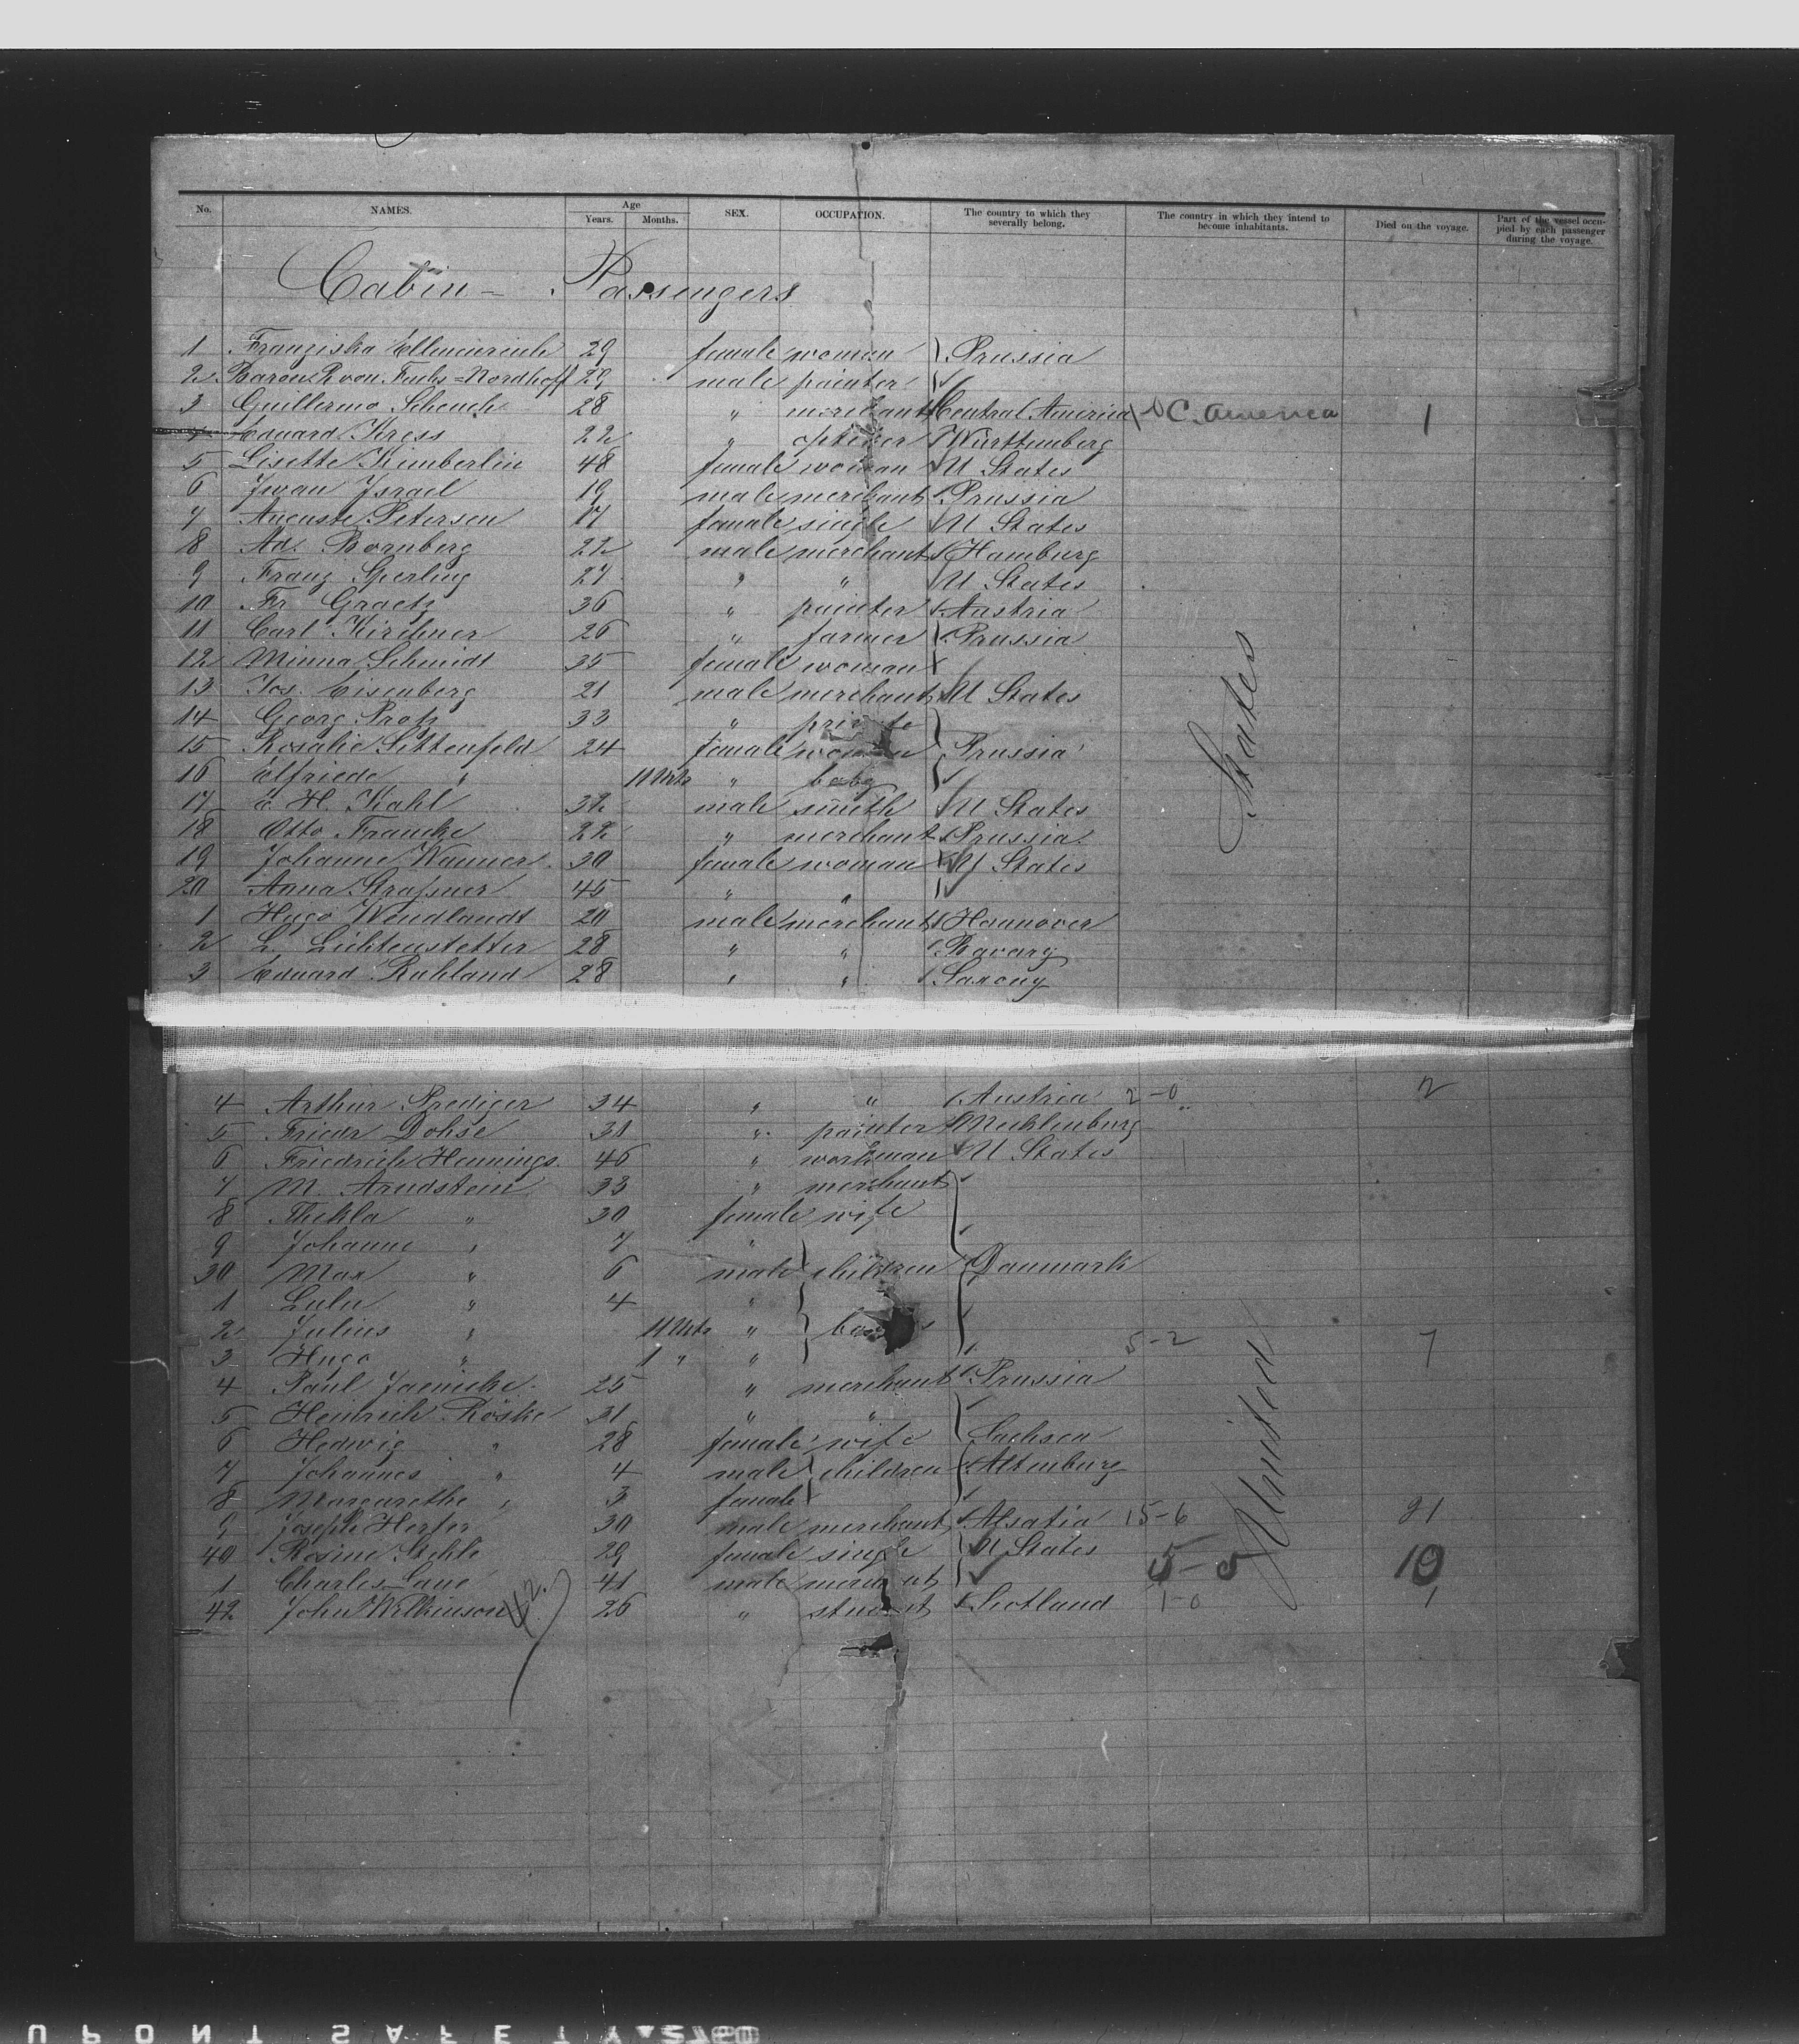 No. NAMES. Age Years. Months. SEX. OCCUPATION. The country to which they severally belong. The country in which they intend to become inhabitants. Died on the voyage. Part of the vessel occupied by each passenger during the voyage.
Cabin - Passengers
1 Franziska 29 female woman Prussia
2 Baron R von Fuchs=Nordhoff 29 male painter
3 Guillermo Schenck 28 " merchant Central America C. America 1
4 Eduard Kress 22 " Württemberg
5 Lisette Kimberlin 48 female woman U States
6 Iwan Israel 19 male merchant Prussia
7 Auguste Petersen 17 female single U States
8 Ad. Bornberg 22 male merchant Hamburg
9 Franz Sperling 27 " " U States
10 Fr Graetz 36 " painter Austria
11 Carl Kirchner 26 " farmer Prussia
12 Minna Schmidt 35 female woman
13 Jos. Eisenberg 21 male merchant U States
14 Georg 33 " private
15 Rosalie Sittenfeld 24 female woman Prussia
16 Elfriede " 11 Mts " baby
17 C. H. Kahl 32 male smith U States
18 Otto Francke 22 " merchant Prussia
19 Johanne Wanner 30 female woman U States
20 Anna Graßner 45 " "
1 Hugo Wendlandt 20 male merchant Hannover
2 L. Lichtenstetter 28 " " Bavary
3 Eduard Ruhland 28 " " Saxony
4 Arthur Prediger 34 " " Austria 2-0 2
5 Friedr Dohse 31 " painter Mecklenburg
6 Friedrich Hennings 46 " workman U States
7 M. Arndstein 33 " merchant
8 Thekla " 30 female wife
9 Johanne " 7 "
30 Max " 6 male children Danmark
1 Lulu " 4 "
2 Julius " 11 Mts "
3 Hugo " 1 " " 5-2 7
4 Paul Jaenicke 25 " merchant Prussia
5 Heinrich Röske 31 " "
6 Hedwig " 28 female wife Sachsen
7 Johannes " 4 male children Altenburg
8 Margarethe " 3 female
9 Joseph 30 male merchant Alsatia 15-6 21
40 Rosine Stehle 29 female single U States
1 Charles Lane 41 male merchant 5-5 10
42 John Wilkinson 42. 26 " student Scotland 1-0 1
United States